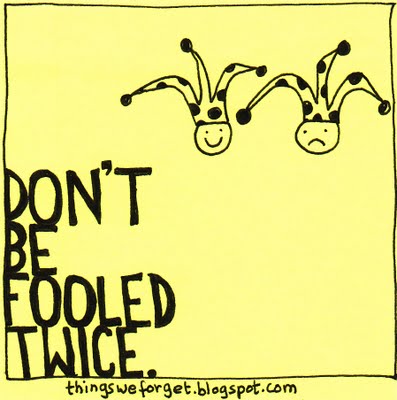 DON'T
BE
FOOLED
TWICE.
thingsweforget.blogspot.com